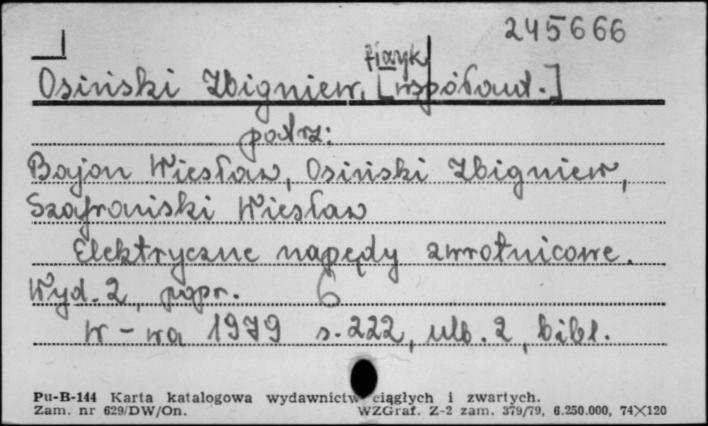 245666
fizyk
Osiński Zbigniew, [współaut.]
patrz:
Bajon Wiesław, Osiński Zbigniew,
Szafrański Wiesław
Elektryczne napędy zwrotnicowe.
Wyd. 2, popr. 6
W-wa 1979 s. 222, nlb. 2, bibl.
Pu-B-144 Karta katalogowa wydawnictw ciągłych i zwartych.
Zam. nr 629/DW/On. WZGraf. Z-2 zam. 379/79, 6.250.000, 74×120